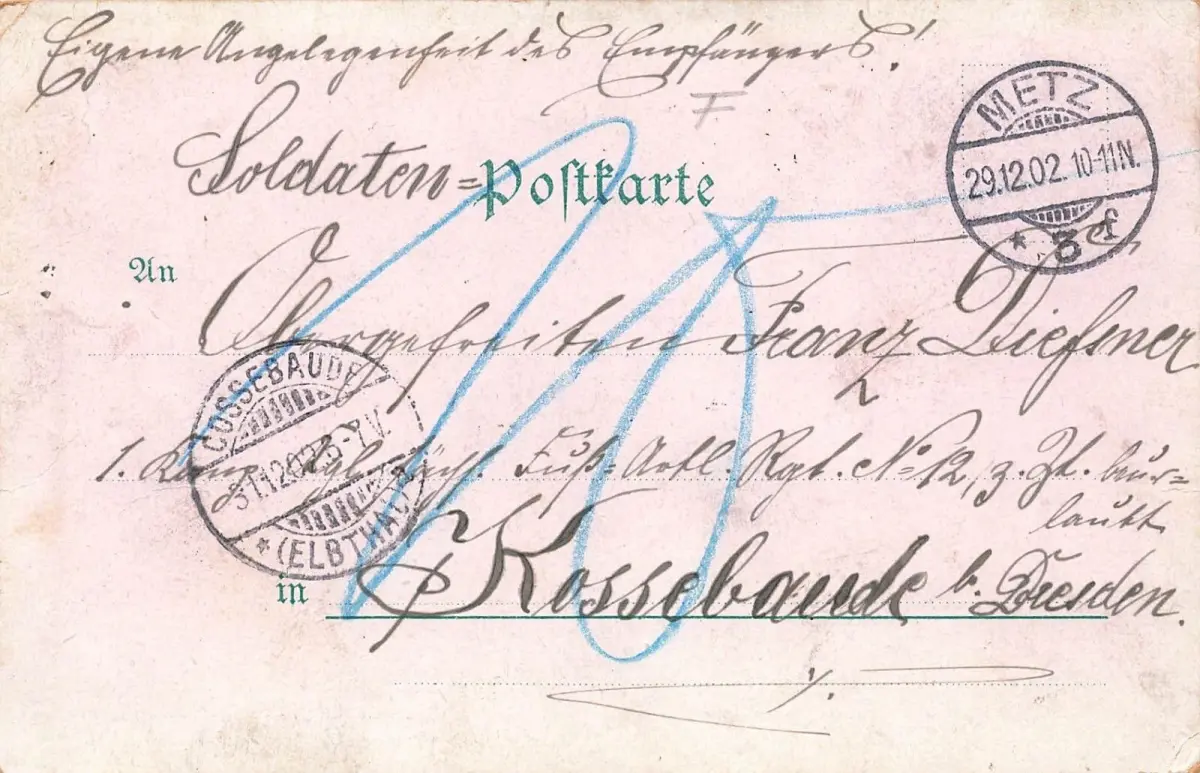 Eigene Angelegenheit des Empfängers!
F
Soldaten=Poſtkarte
METZ
29.12.02. 10-11N.
* 3 f
An
Obergefreiten Franz Dießner
COSSEBAUDE
31.12.02. 6-7.V.
* (ELBTHAL)
1. Komp. Kgl. Sächs. Fuß=Artl. Rgt. No 12, z. Zt. beur=
laubt
in
Kossebaude b. Dresden.
10